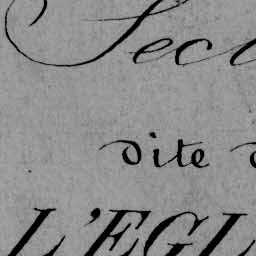 Sec
dite d
L'EGL